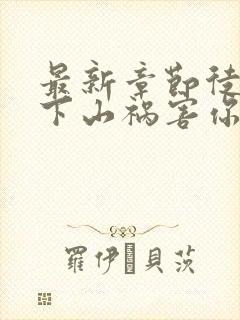 最新章節徒
下山禍害你
羅伊�貝茨